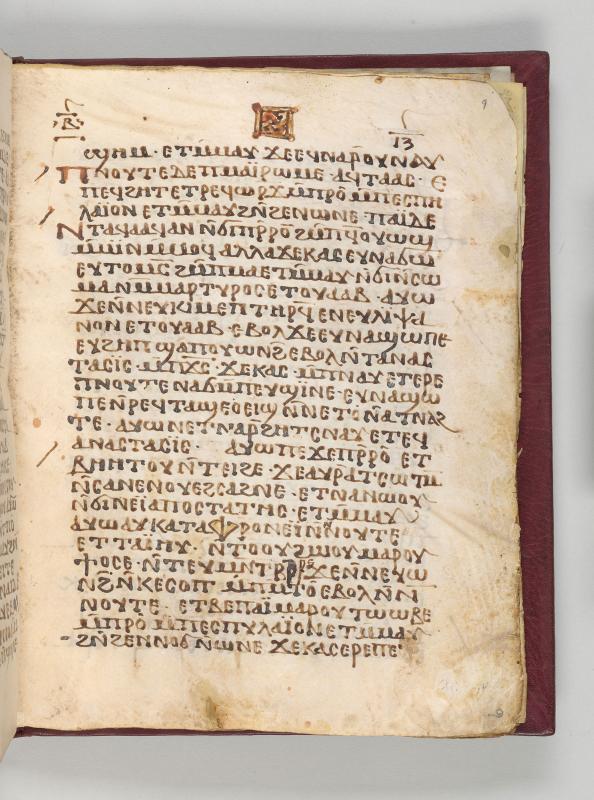 9
13
ϣⲏⲙ · ⲉⲧⲙ̄ⲙⲁⲩ ϫⲉⲉϥⲛⲁⲣ̄ⲟⲩⲛⲁⲩ
ⲡⲛⲟⲩⲧⲉⲇⲉⲡⲙⲁⲓ̈ⲣⲱⲙⲉ · ⲁϥⲧⲁⲁⲥ · ⲉ
ⲡⲉϥϩⲏⲧⲉⲧⲣⲉϥⲱⲣϫ̄ⲙ̄ⲡⲣⲟ̄ⲙ̄ⲡⲉⲥⲡⲏ
ⲗⲁⲓ̈ⲟⲛ ⲉⲧⲙ̄ⲙⲁⲩϩⲛ̄ϩⲉⲛⲱⲛⲉ · ⲡⲁⲓ̈ⲇⲉ
ⲛⲧⲁϥⲁⲁϥⲁⲛ ⲛ̄ϭⲓⲡⲣ̄ⲣⲟ ϩⲙ̄ⲡϥⲟⲩⲱϣ
ⲙ̄ⲙⲓⲛⲙ̄ⲙⲟϥ ⲁⲗⲗⲁϫⲉⲕⲁⲥ ⲉⲩⲛⲁϭⲱ
ⲉⲩⲧⲟⲙⲥ̄ ϩⲙ̄ⲡⲙⲁⲉⲧⲙ̄ⲙⲁⲩ ⲛ̄ϭⲓⲛ̄ⲥⲱ
ⲙⲁⲛⲙ̄ⲙⲁⲣⲧⲩⲣⲟⲥ ⲉⲧⲟⲩⲁⲁⲃ · ⲁⲩⲱ
ϫⲉⲛ̄ⲛⲉⲩⲕⲓⲙ ⲉⲡⲧⲏⲣϥ̄ ⲉⲛⲉⲩⲗⲓⲯⲁ
ⲛⲟⲛ ⲉⲧⲟⲩⲁⲁⲃ · ⲉⲃⲟⲗϫⲉⲉⲩⲛⲁϣⲱⲡⲉ
ⲉⲩϩⲏⲡ ϣⲁⲡⲟⲩⲱⲛϩ̄ ⲉⲃⲟⲗⲛ̄ⲧⲁⲛⲁⲥ
ⲧⲁⲥⲓⲥ · ⲙ̄ⲡⲭ̄ⲥ̄ · ϫⲉⲕⲁⲥ · ⲙ̄ⲡⲛⲁⲩ ⲉⲧⲉⲣⲉ
ⲡⲛⲟⲩⲧⲉ ⲛⲁϭⲙ̄ⲡⲉⲩϣⲓⲛⲉ · ⲉⲩⲛⲁϣⲱ
ⲡⲉ ⲛ̄ⲣⲉϥⲧⲁϣⲉⲟⲉⲓϣ ⲛ̄ⲛⲉⲧⲟ̄ⲛ̄ⲁⲧⲛⲁϩ
ⲧⲉ · ⲁⲩⲱⲛⲉⲧⲛⲁⲣϩⲏⲧⲥⲛⲁⲩ ⲉⲧⲉϥ
ⲁⲛⲁⲥⲧⲁⲥⲓⲥ · ⲁⲩⲱⲡⲉϫⲉⲡⲣ̄ⲣⲟ̄ ⲉⲧ
ⲃⲏⲏⲧⲟⲩ ⲛ̄ⲧⲉⲓϩⲉ · ϫⲉⲁⲩⲣ̄ⲁⲧⲥⲱⲧⲙ̄
ⲛ̄ⲥⲁⲛⲉⲛⲟⲩⲉϩⲥⲁϩⲛⲉ · ⲉⲧⲛⲁⲛⲟⲩⲟⲩ
ⲛ̄ϭⲓⲛⲉⲓ̈ⲁⲡⲟⲥⲧⲁⲧⲏⲥ · ⲉⲧⲙ̄ⲙⲁⲩ
ⲁⲩⲱⲁⲩⲕⲁⲧⲁⲫⲣⲟⲛⲉⲓ̈ⲛ̄ⲛ̄ⲛⲟⲩⲧⲉ
ⲉⲧⲧⲁⲓ̈ⲏⲩ · ⲛ̄ⲧⲟⲟⲩϩⲱⲟⲩⲙⲁⲣⲟⲩ
ϥⲟⲥⲉ · ⲛ̄ⲧⲉⲩⲙⲛ̄ⲧⲣ̄ⲣⲟ ϫⲉⲛ̄ⲛⲉⲩⲱ
ⲛϩ̄ ⲛ̄ⲕⲉⲥⲟⲡ ⲙ̄ⲡⲙ̄ⲧⲟ̄ ⲉⲃⲟⲗⲛ̄ⲛ
ⲛⲟⲩⲧⲉ · ⲉⲧⲃⲉⲡⲁⲓ̈ ⲙⲁⲣⲟⲩⲧⲱⲱⲃⲉ
ⲙ̄ⲡⲣⲟ̄ ⲙ̄ⲡⲉⲥⲡⲩⲗⲁⲓ̈ⲟⲛ ⲉⲧⲙ̄ⲙⲁⲩ
ϩⲛ̄ϩⲉⲛⲛⲟϭ ⲛ̄ⲱⲛⲉ ϫⲉⲕⲁⲥⲉⲣⲉⲡⲉ